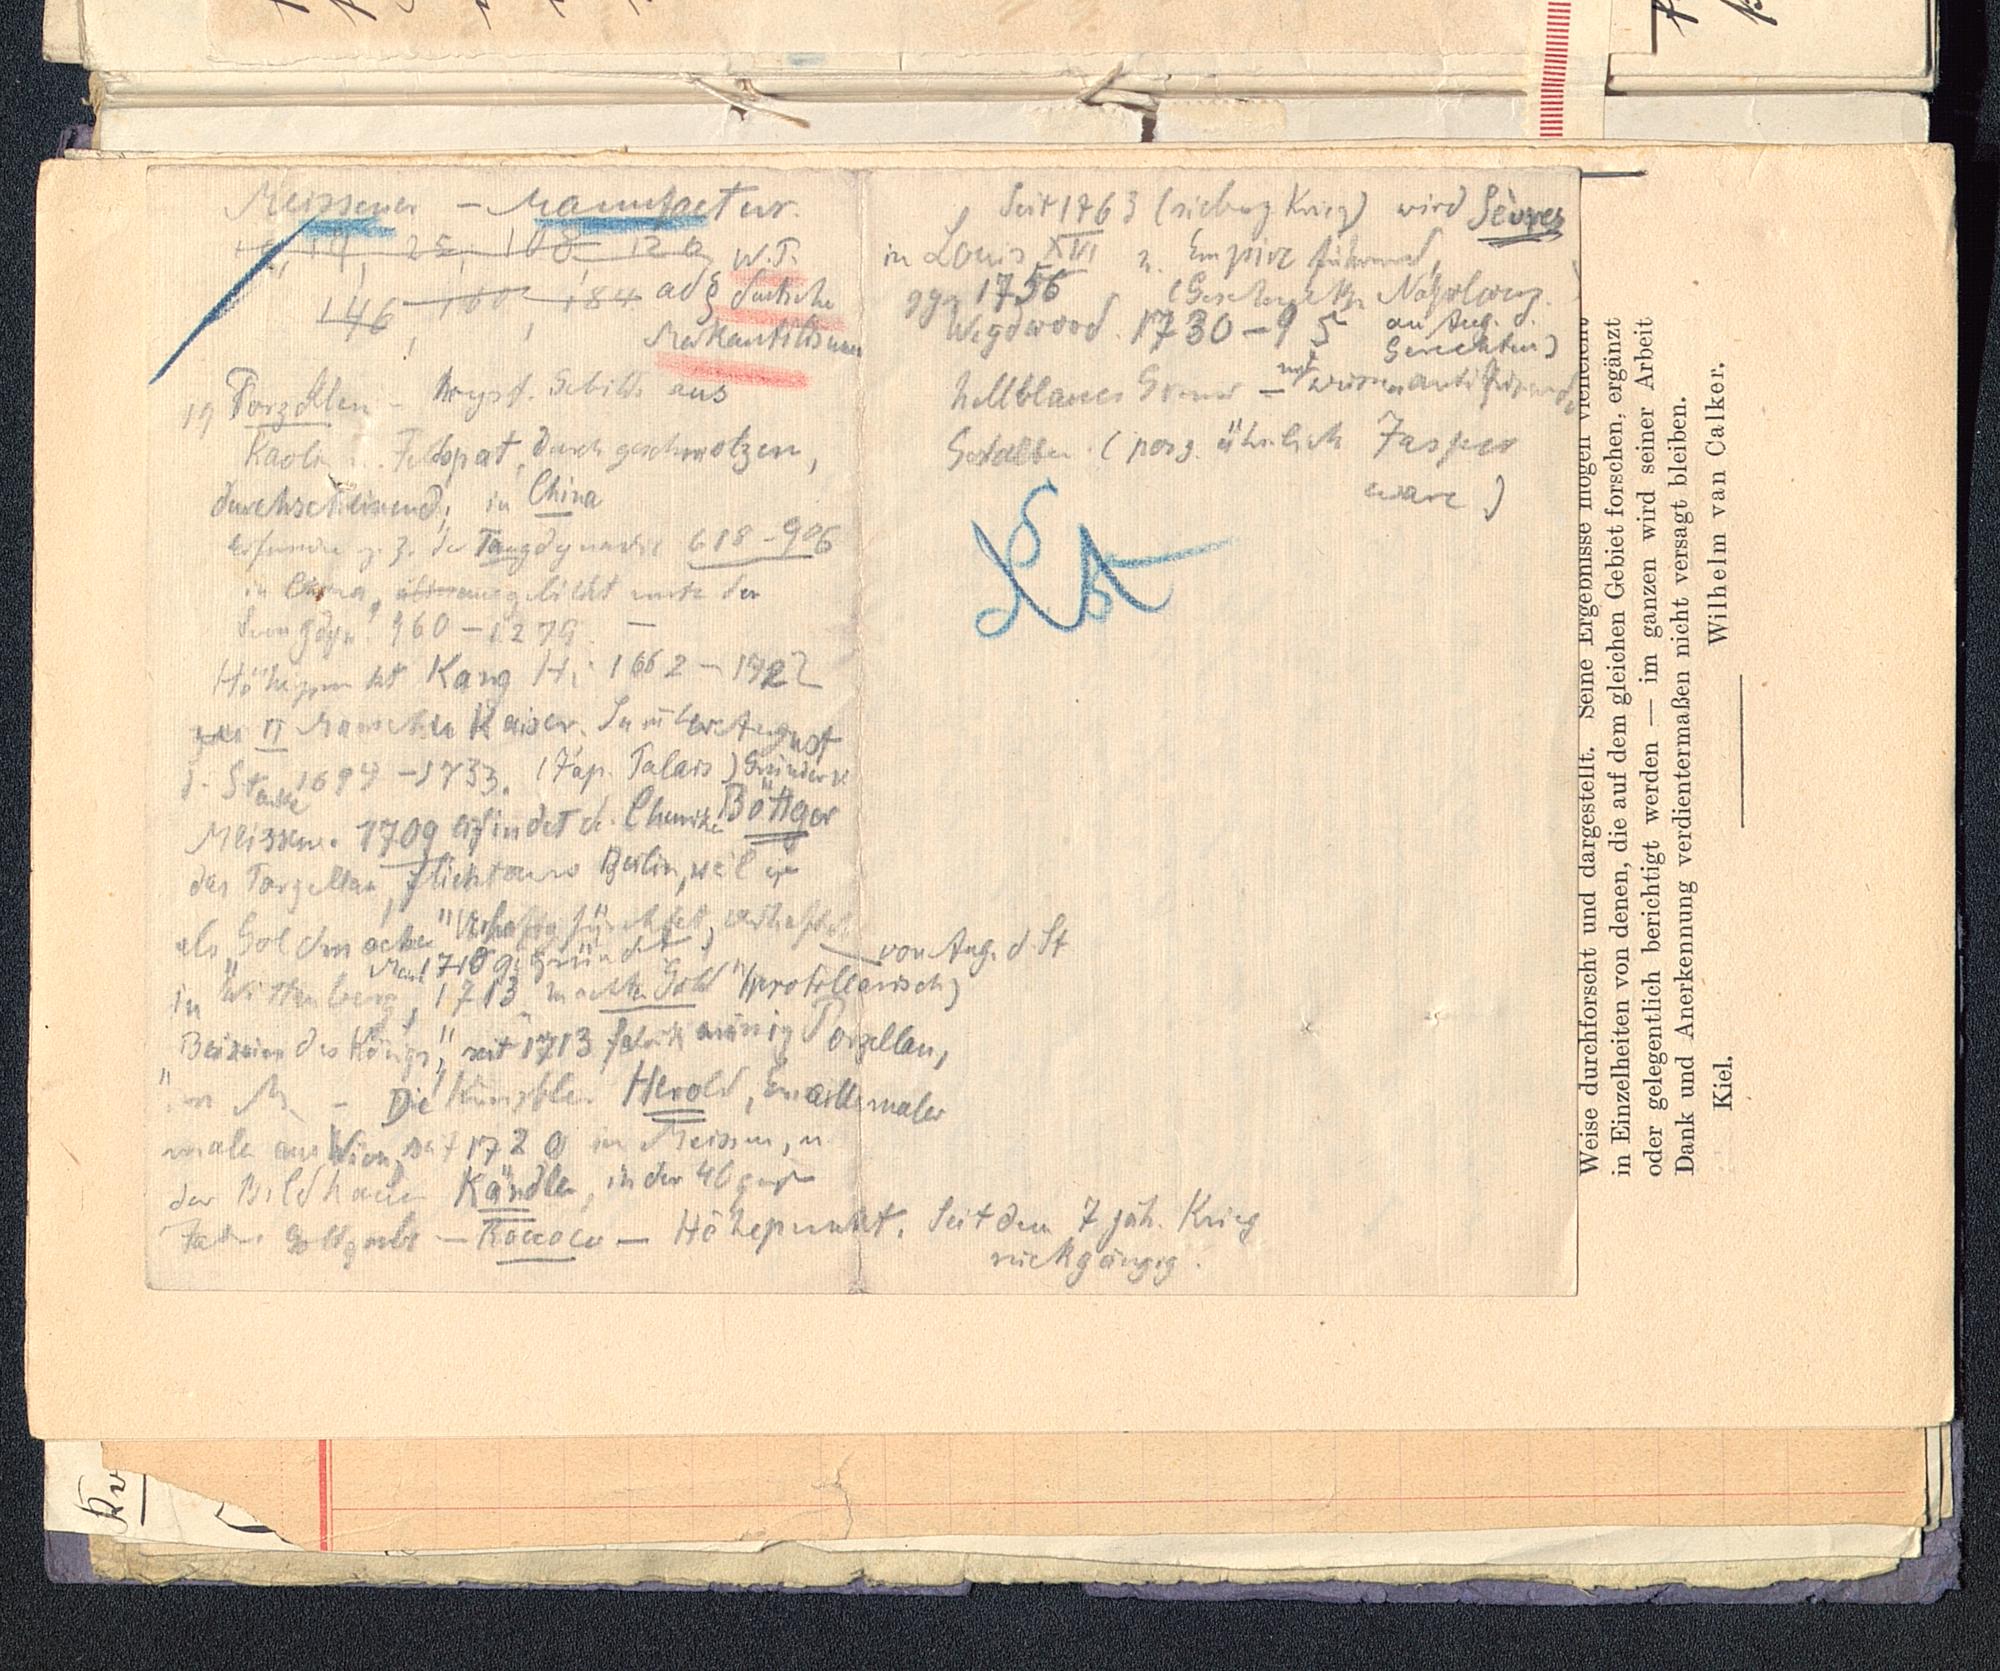 Meissener – Manufactur.
12, 19, 25, 108, 120, W.T.
146, 160, 184 adg deutsche
Merkantilismus
19 Porzellan – Kryst. Gebilde aus
Kaolin u. Feldspat, durchgeschmolzen,
durchscheinend, in China
erfunden z. Z. der Tangdynastie 618–906
in China, ausgebildet unter der
Sungdyn 960–1279. –
Höhepunkt Kang Hi 1662–1722
II Mandschu Kaiser. Sammler August
d. Starke 1694–1733. (Jap. Palais) Gründer v.
Meissen. 1709 erfindet d. Chemiker Böttger
das Porzellan, flieht aus Berlin, weil er
als "Goldmacher" Verhaftg fürchtet, verhaftet
von Aug. d. St
1710 gegründet
in Wittenberg, 1713 machte Gold "(protokollarisch)
Beisein des Königs", seit 1713 fabrikmässig Porzellan,
in M. – Die Künstler Herold, Emaillemaler
maler aus Wien, seit 1720 in Meissen, u.
der Bildhauer Kändler, in den 40ger
Jahren – Roccoco – Höhepunkt. Seit dem 7 jäh. Krieg
rückgängig.
Seit 1763 (siebenj Krieg) wird Sèvres
in Louis XVI u. Empire führend,
ggr 1756 (Geschenke Napoleons
an Aug. d.
Gerechten)
Wegdwood 1730–95
hellblauer Grund – mit weissen antikisierende
Gestalten (porz. ähnlich Jasper
ware)
Weise durchforscht und dargestellt. Seine Ergebnisse mögen vielleicht
in Einzelheiten von denen, die auf dem gleichen Gebiet forschen, ergänzt
oder gelegentlich berichtigt werden — im ganzen wird seiner Arbeit
Dank und Anerkennung verdientermaßen nicht versagt bleiben.
Kiel. Wilhelm van Calker.